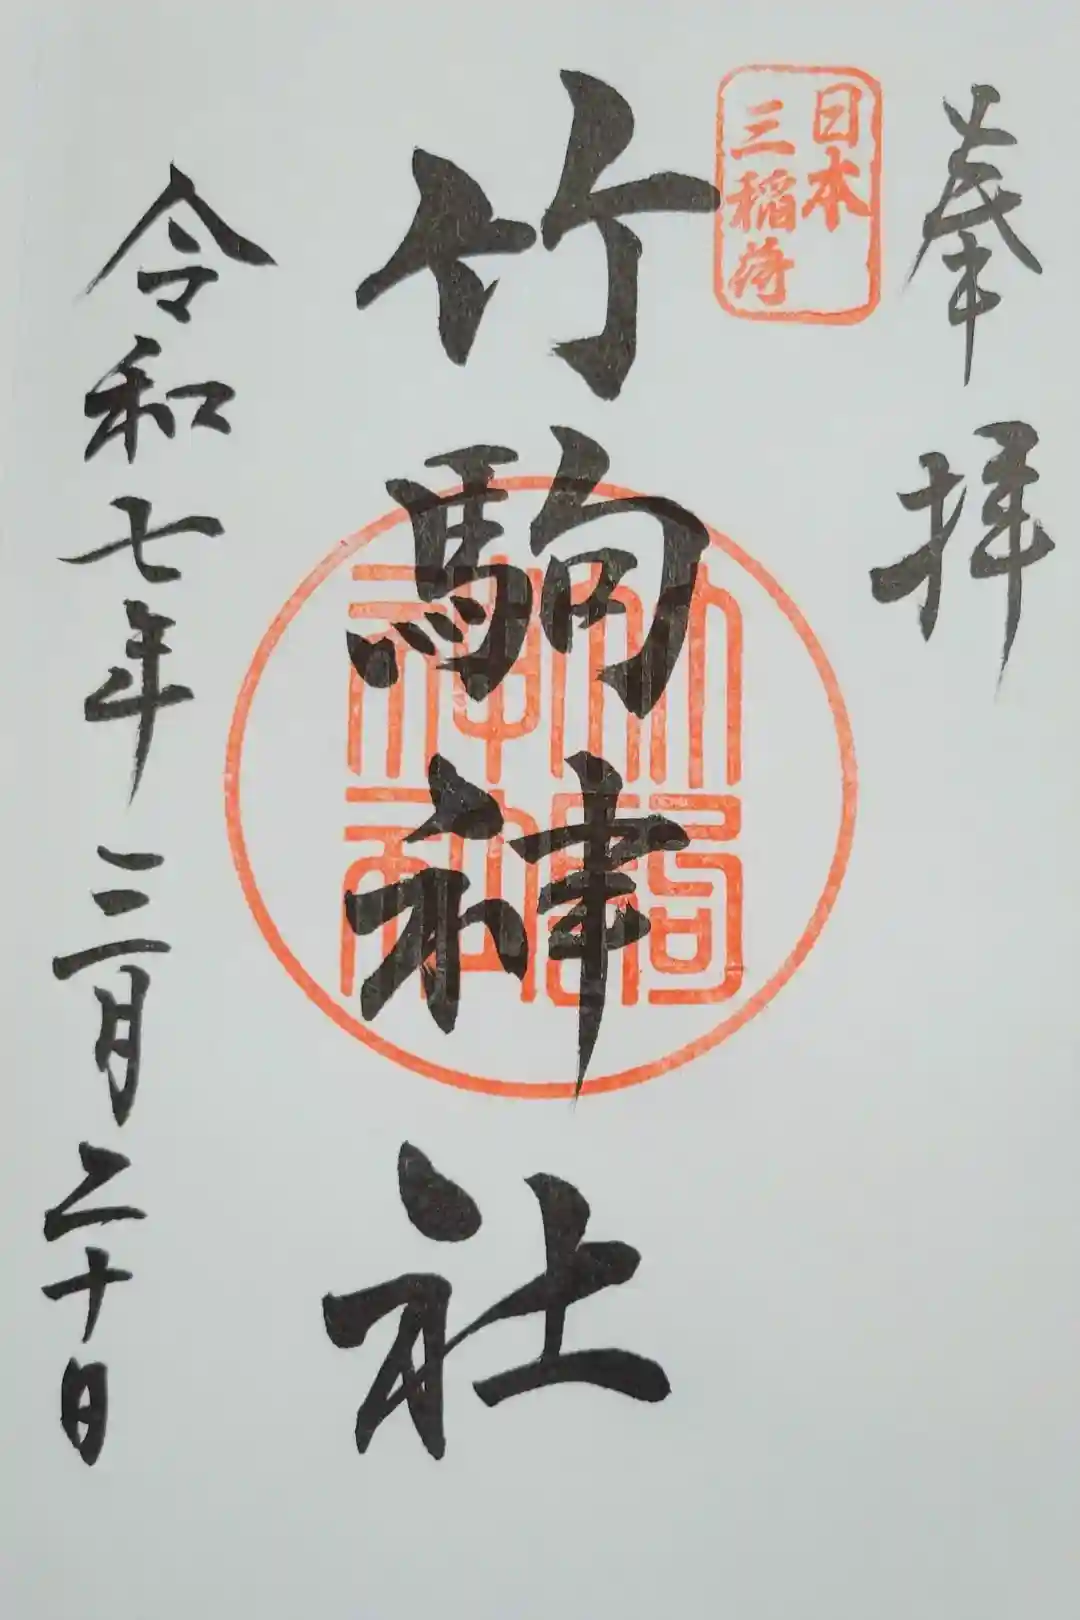 奉拝
日本
三稲荷
竹駒神社
竹駒
神社
令和七年三月二十日